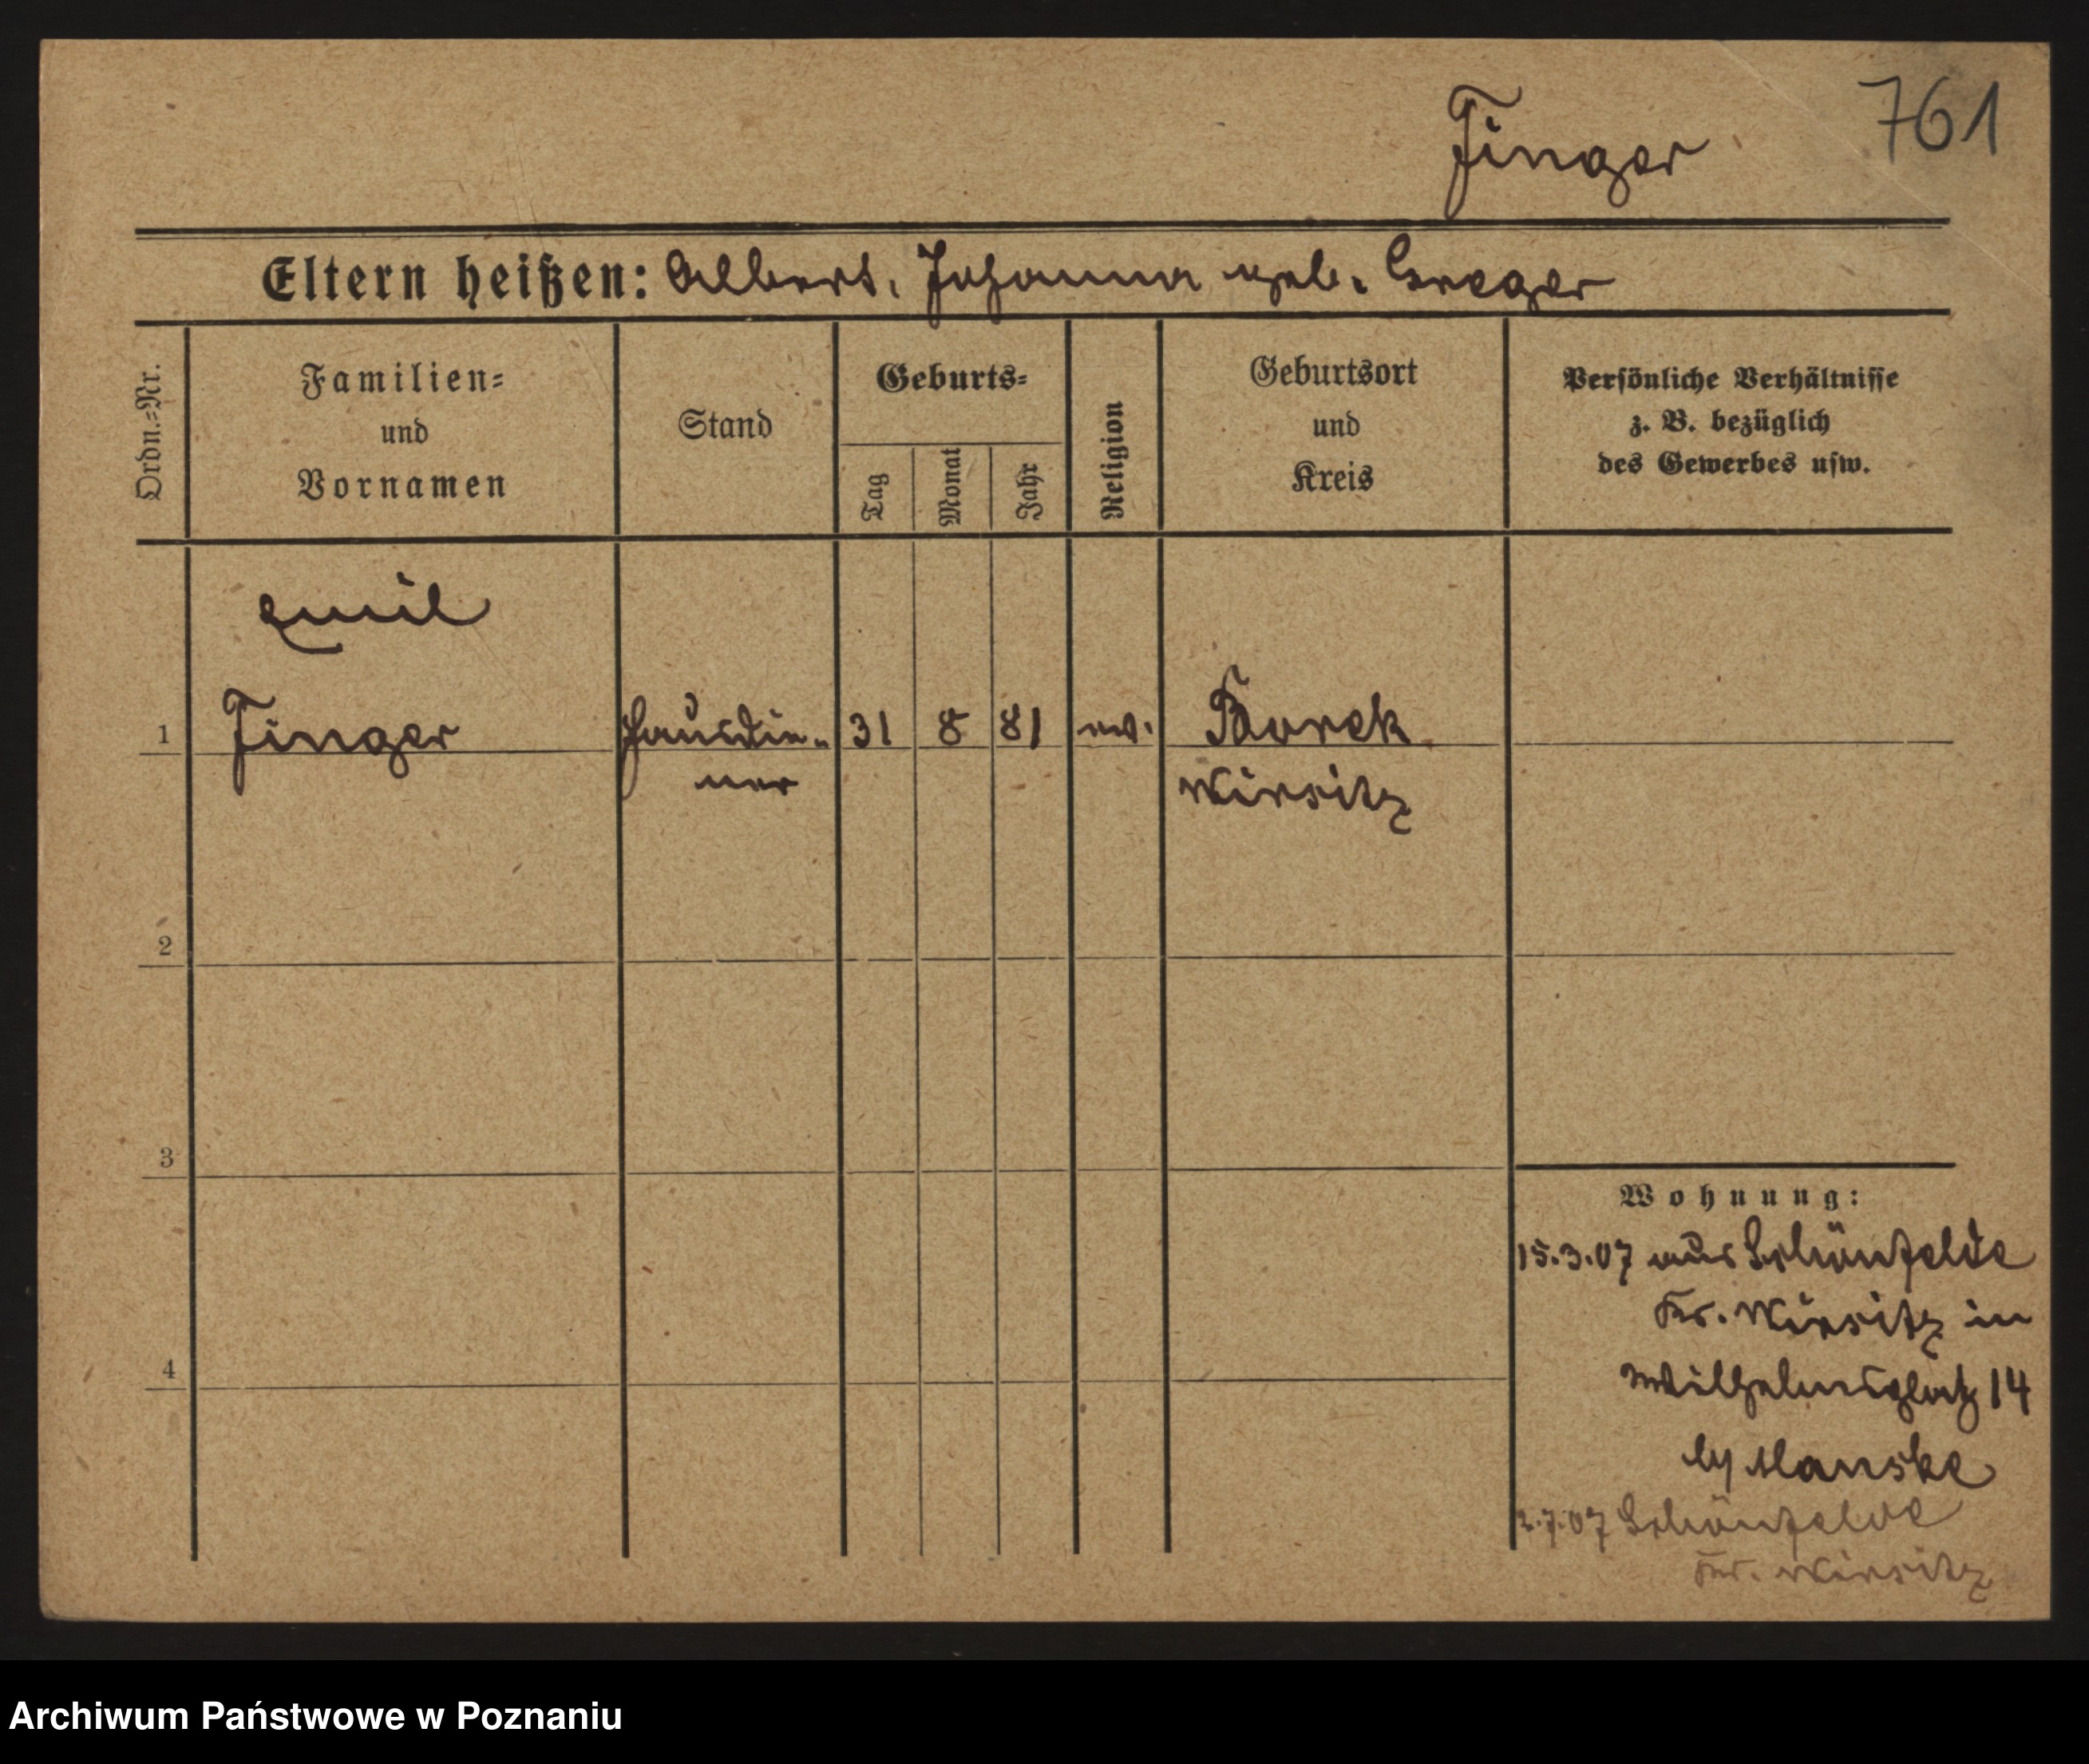 761
Finger
Eltern heißen: Albert, Johanna geb. Greger
Ordn.-Nr.
Familien-
und
Vornamen
Stand
Geburts-
Tag
Monat
Jahr
Religion
Geburtsort
und
Kreis
Persönliche Verhältnisse
z. B. bezüglich
des Gewerbes usw.
Emil
1 Finger Hausdie- 31 8 81 ev. Borek
ner Wirsitz
2
3
4
Wohnung:
15.3.07 aus Schönfelde
Kr. Wirsitz in
Wilhelmsplatz 14
by Manske
2.7.07 Schönfelde
Kr. Wirsitz
Archiwum Państwowe w Poznaniu